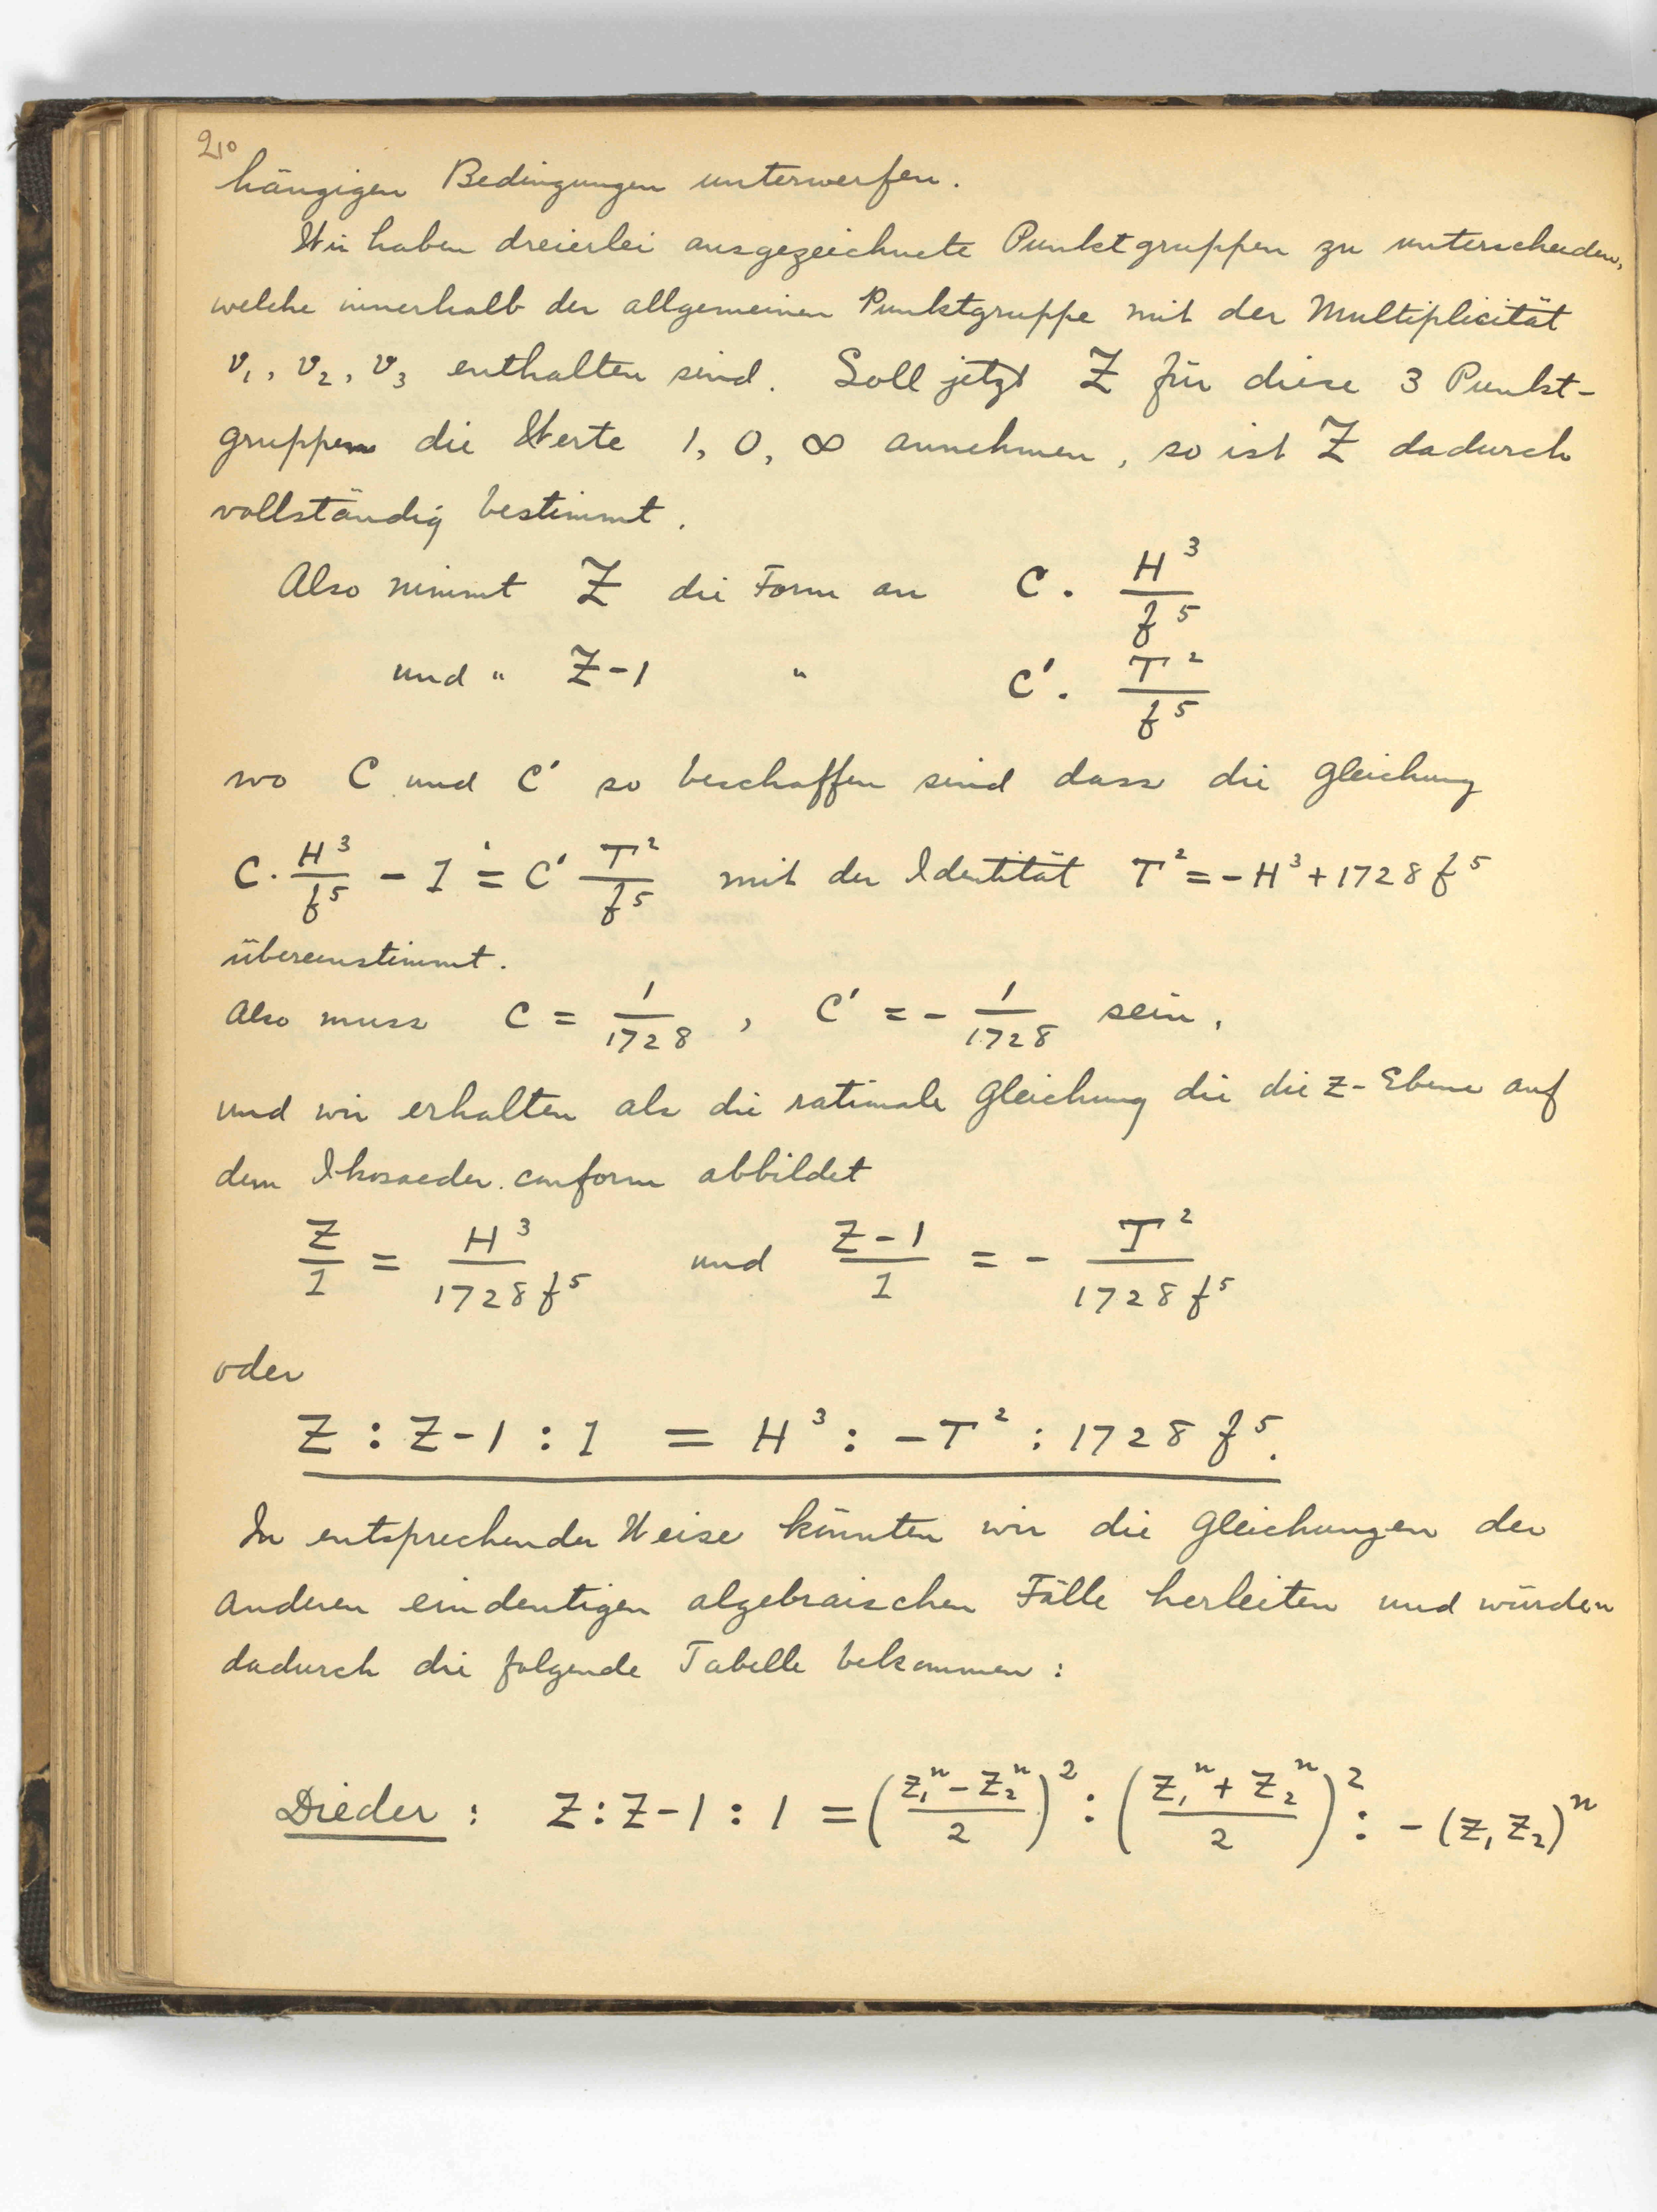 210
hängigen Bedingungen unterwerfen.
Wir haben dreierlei ausgezeichnete Punktgruppen zu unterscheiden,
welche innerhalb der allgemeinen Punktgruppe mit der Multiplicität
ν₁, ν₂, ν₃ enthalten sind. Soll jetzt Z für diese 3 Punkt-
gruppen die Werte 1, 0, ∞ annehmen, so ist Z dadurch
vollständig bestimmt.
Also nimmt Z die Form an C · H³/f⁵
und " Z-1 " C' · T²/f⁵
wo C und C' so beschaffen sind dass die Gleichung
C · H³/f⁵ - 1 = C' T²/f⁵ mit der Identität T² = -H³ + 1728 f⁵
übereinstimmt.
Also muss C = 1/1728 , C' = - 1/1728 sein,
und wir erhalten als die rationale Gleichung die die Z-Ebene auf
dem Ikosaeder conform abbildet
Z/1 = H³/1728 f⁵ und Z-1/1 = - T²/1728 f⁵
oder
Z : Z-1 : 1 = H³ : -T² : 1728 f⁵.
In entsprechender Weise könnten wir die Gleichungen der
anderen eindeutigen algebraischen Fälle herleiten und würden
dadurch die folgende Tabelle bekommen:
Dieder : Z : Z-1 : 1 = ((z₁ⁿ - z₂ⁿ)/2)² : ((z₁ⁿ + z₂ⁿ)/2)² : -(z₁ z₂)ⁿ